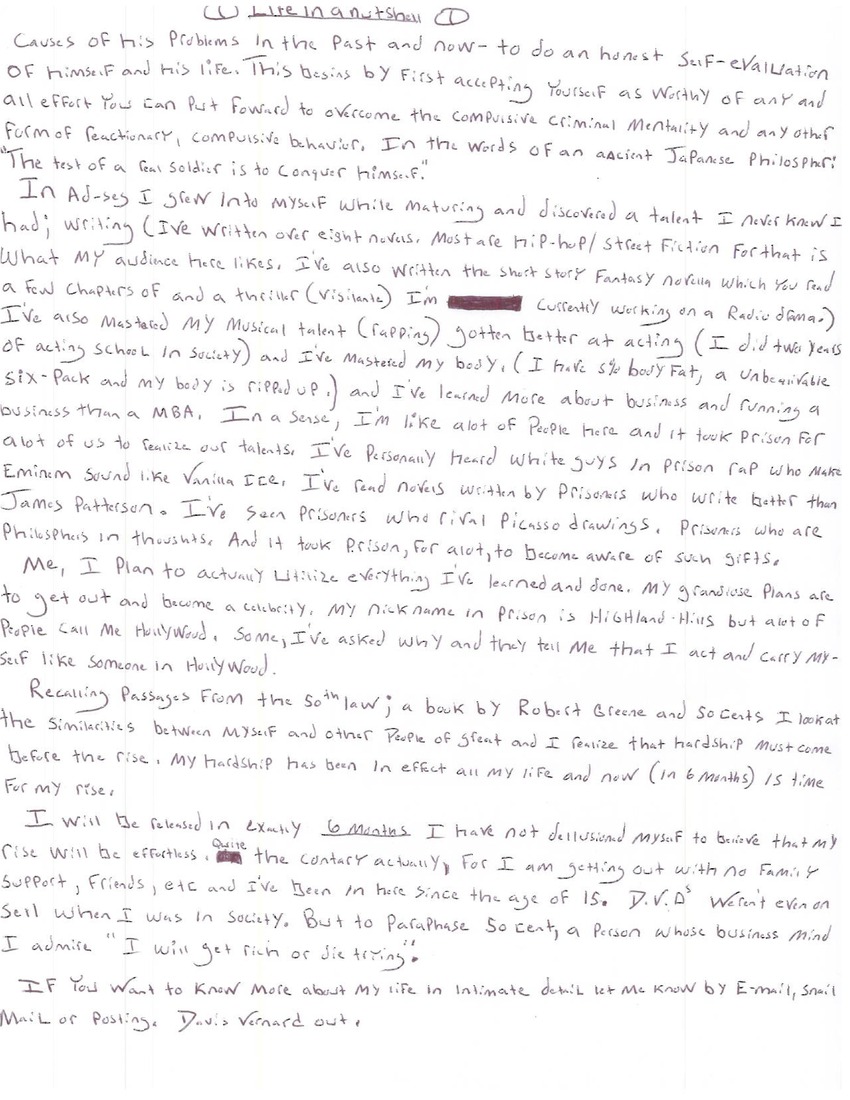 (1) Life in a nutshell (1)
Causes of his Problems in the Past and now- to do an honest self-evaluation
of himself and his life. This begins by first accepting Yourself as worthy of any and
all effort You can Put foward to overcome the compulsive criminal Mentality and any other
form of reactionary, compulsive behavior. In the words of an ancient Japanese Philospher:
"The test of a real soldier is to conquer himself."
In Ad-seg I grew into Myself while maturing and discovered a talent I never knew I
had; writing (I've written over eight novels. Most are hip-hop/ street fiction for that is
what My audience here likes. I've also written the short story Fantasy novella which You read
a few chapters of and a thriller (Visilante) I'm currently working on a Radio drama.)
I've also Mastered My Musical talent (rapping) gotten better at acting (I did two years
of acting school in society) and I've Mastered my body. (I have 5% body Fat, a unbeliivable
six-Pack and my body is ripped up.) and I've learned more about business and running a
business than a MBA. In a sense, I'm like alot of People here and it took prison for
alot of us to realize our talents. I've Personally heard white guys in prison rap who make
Eminem sound like Vanilla Ice. I've read novels written by Prisoners who write better than
James Patterson. I've seen prisoners who rival Picasso drawings. Prisoners who are
Philosphers in thoughts. And it took Prison, for alot, to become aware of such gifts.
Me, I Plan to actually Utilize everything I've learned and done. My grandiose Plans are
to get out and become a celebrity. My nickname in Prison is Highland-Hills but alot of
People call Me Hollywood. Some, I've asked why and they tell Me that I act and carry my-
self like someone in Hollywood.
Recalling Passages from the 50th law; a book by Robert Greene and 50 cents I look at
the similarities between Myself and other People of great and I realize that hardship Must come
before the rise. My hardship has been in effect all my life and now (in 6 months) is time
for my rise.
I will be released in exactly 6 Months I have not dellusioned myself to believe that my
rise will be effortless. Quite the contary actually, for I am getting out with no family
support, friends, etc and I've been in here since the age of 15. D.V.D's weren't even on
sell when I was in society. But to Paraphase 50 cent, a person whose business mind
I admire "I will get rich or die trying".
If You want to know more about my life in intimate detail let me know by E-mail, snail
Mail or Posting. Davis Vernard out.